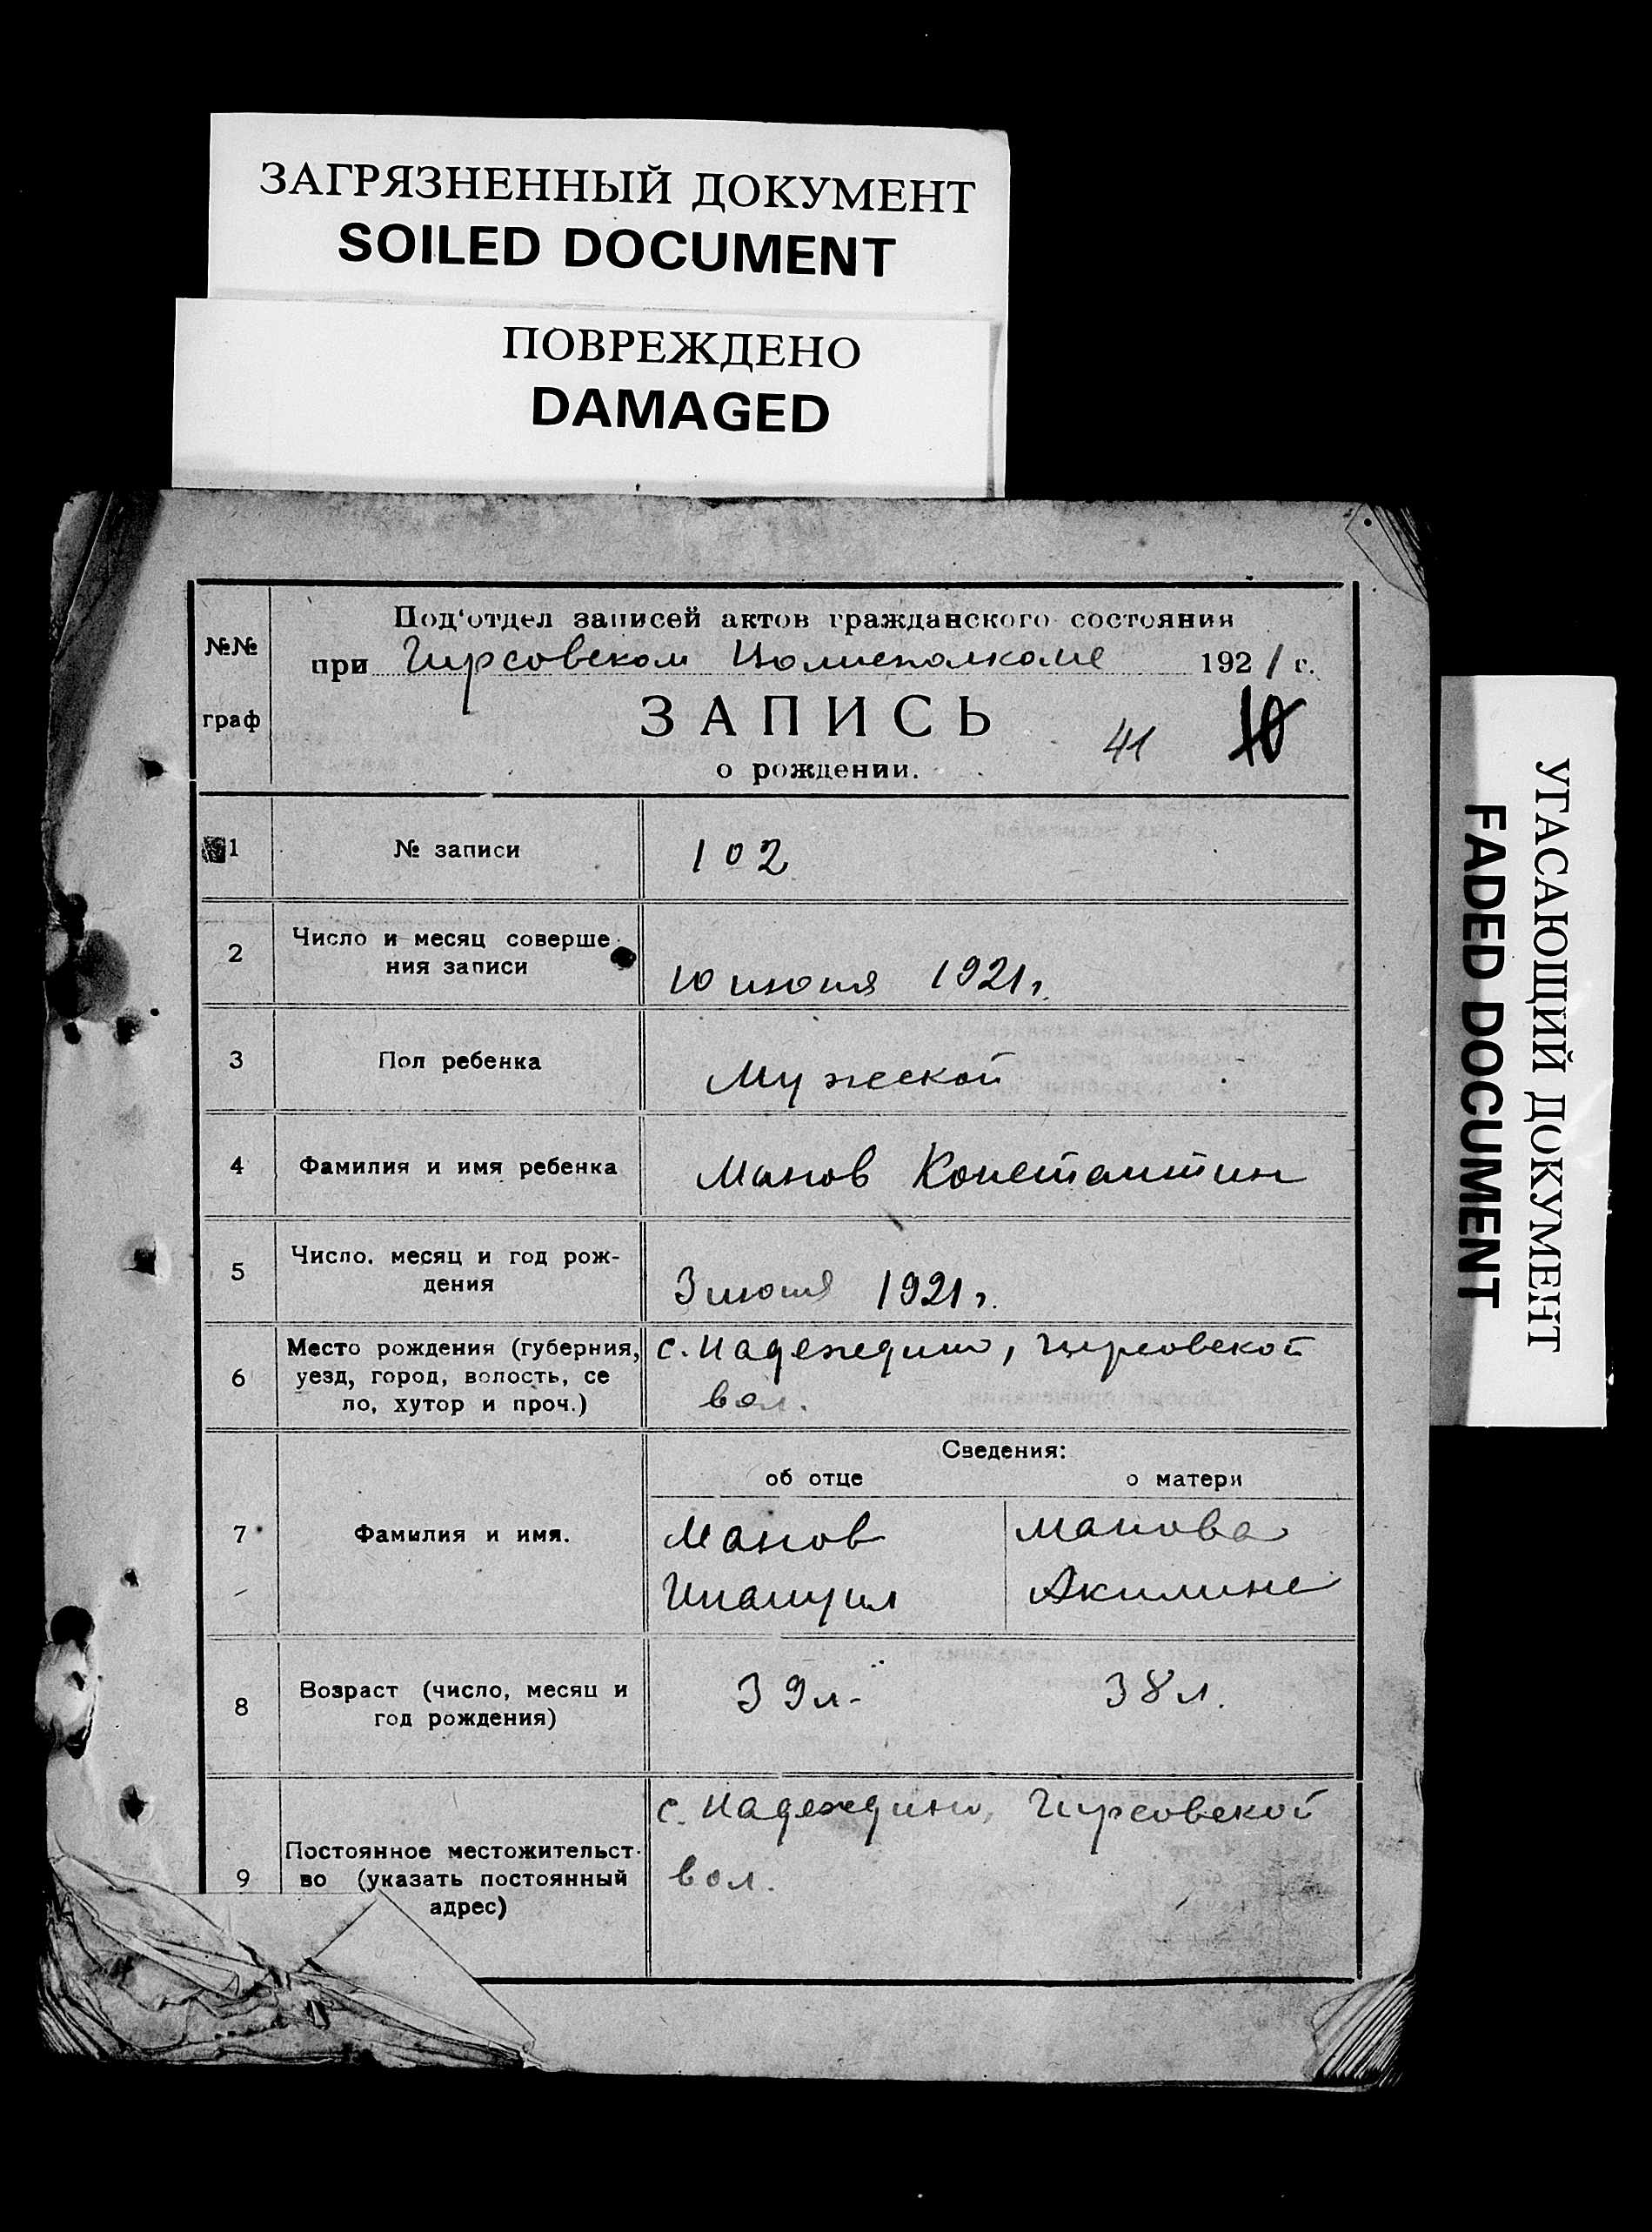 ЗАГРЯЗНЕННЫЙ ДОКУМЕНТ
SOILED DOCUMENT
ПОВРЕЖДЕНО
DAMAGED
УГАСАЮЩИЙ ДОКУМЕНТ
FADED DOCUMENT
№№
граф
Под'отдел записей актов гражданского состояния
при Гирсовском Волисполкоме 1921 г.
ЗАПИСЬ
41 10
о рождении.
1 № записи 102
2 Число и месяц соверше
ния записи 10 июня 1921 г.
3 Пол ребенка Мужской
4 Фамилия и имя ребенка Манов Константин
5 Число, месяц и год рож-
дения 3 июня 1921 г.
6 Место рождения (губерния,
уезд, город, волость, се
ло, хутор и проч.)
с. Надеждино, Гирсовской
вол.
Сведения:
об отце о матери
7 Фамилия и имя.
Манов Манова
Акилине
8 Возраст (число, месяц и
год рождения) 39 л- 38 л.
9 Постоянное местожительст-
во (указать постоянный
адрес)
с. Надеждино, Гирсовской
вол.